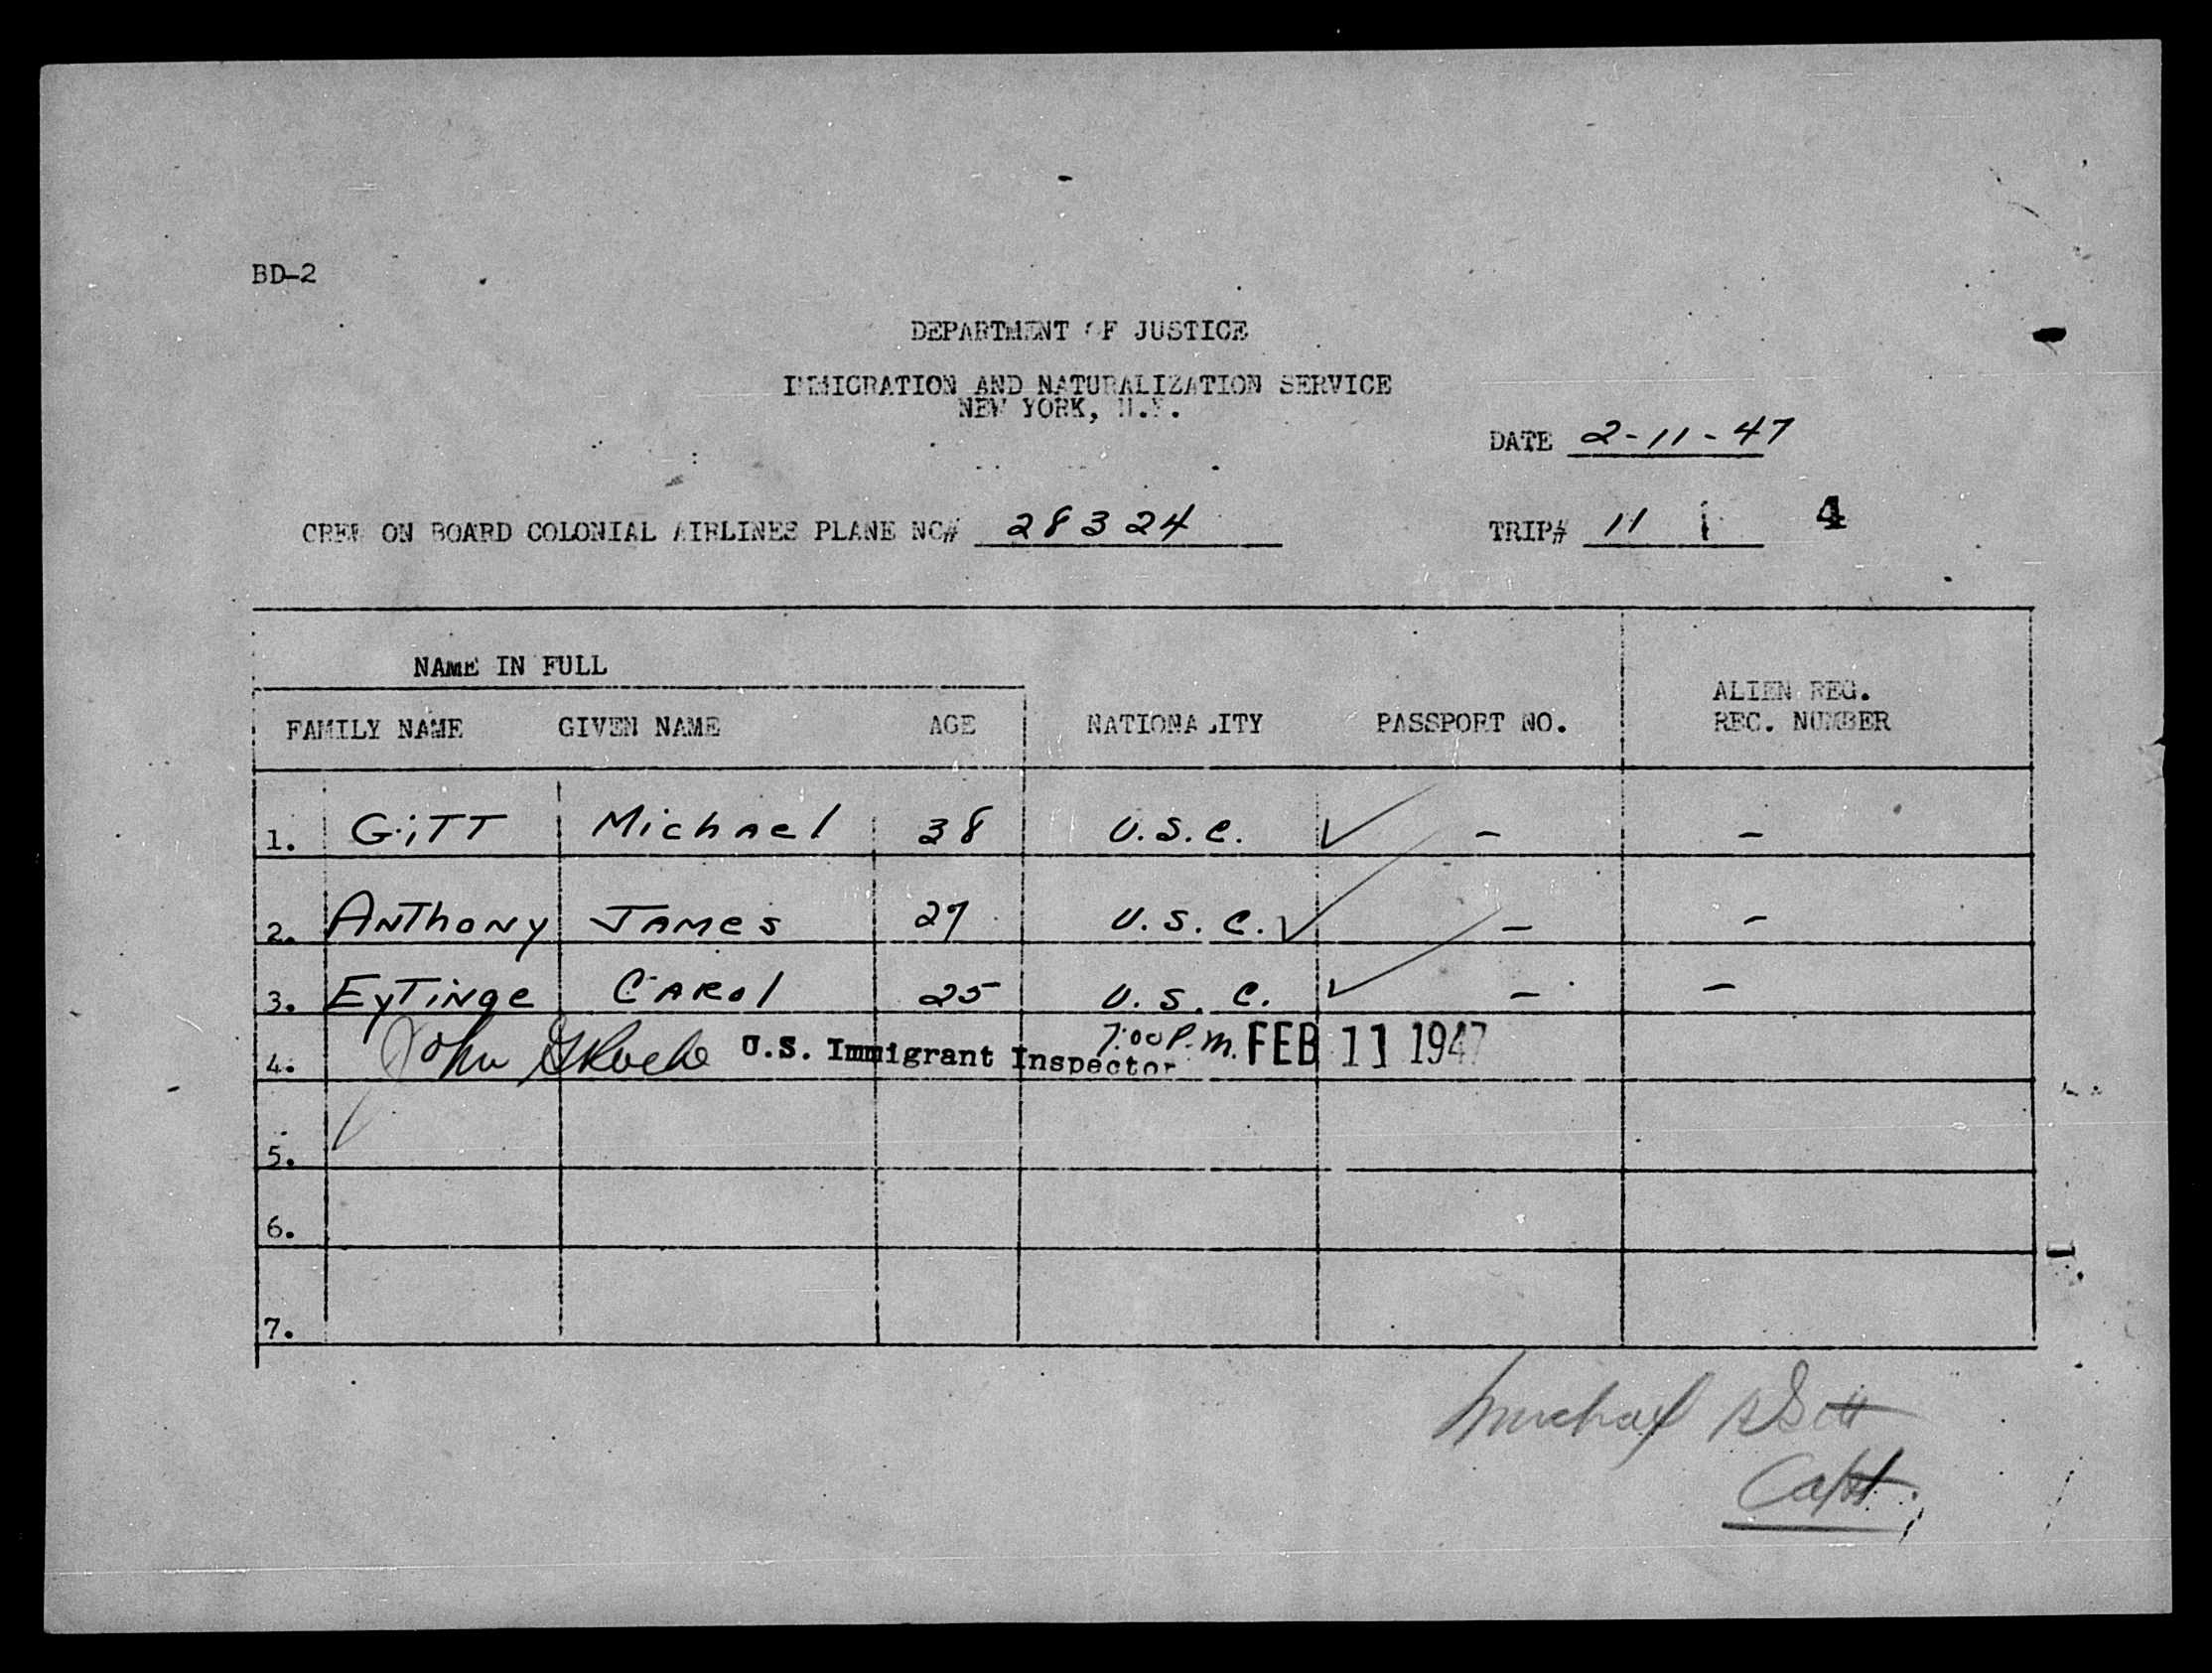 BD-2
DEPARTMENT OF JUSTICE
IMMIGRATION AND NATURALIZATION SERVICE
NEW YORK, N.Y.
DATE 2-11-47
CREW ON BOARD COLONIAL AIRLINES PLANE NC# 28324 TRIP# 11 4
NAME IN FULL
FAMILY NAME GIVEN NAME AGE NATIONALITY PASSPORT NO. ALIEN REG. REC. NUMBER
1. GiTT Michael 38 U.S.C. ✓ - -
2. Anthony James 27 U.S.C. ✓ - -
3. Eytinge Carol 25 U.S.C. ✓ - -
4. John U.S. Immigrant Inspector 7:00 P.m. FEB 11 1947
5.
6.
7.
Michael Gitt
Capt.